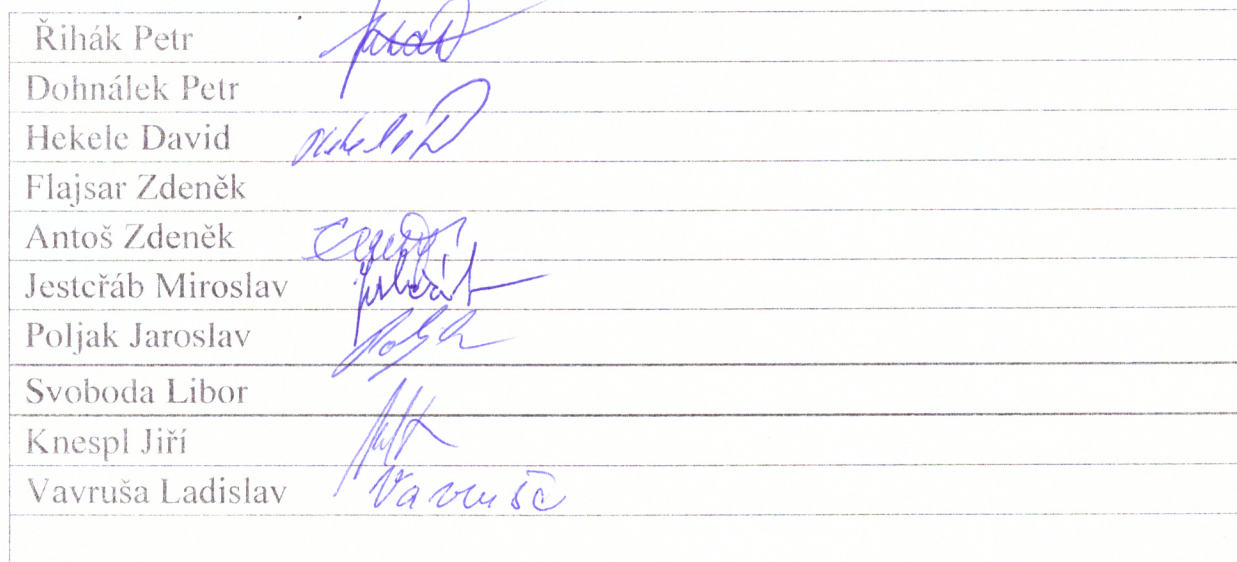 Řihák Petr
Dohnálek Petr
Hekele David
Flajsar Zdeněk
Antoš Zdeněk
Jestřáb Miroslav
Poljak Jaroslav
Svoboda Libor
Knespl Jiří
Vavruša Ladislav Vavruša